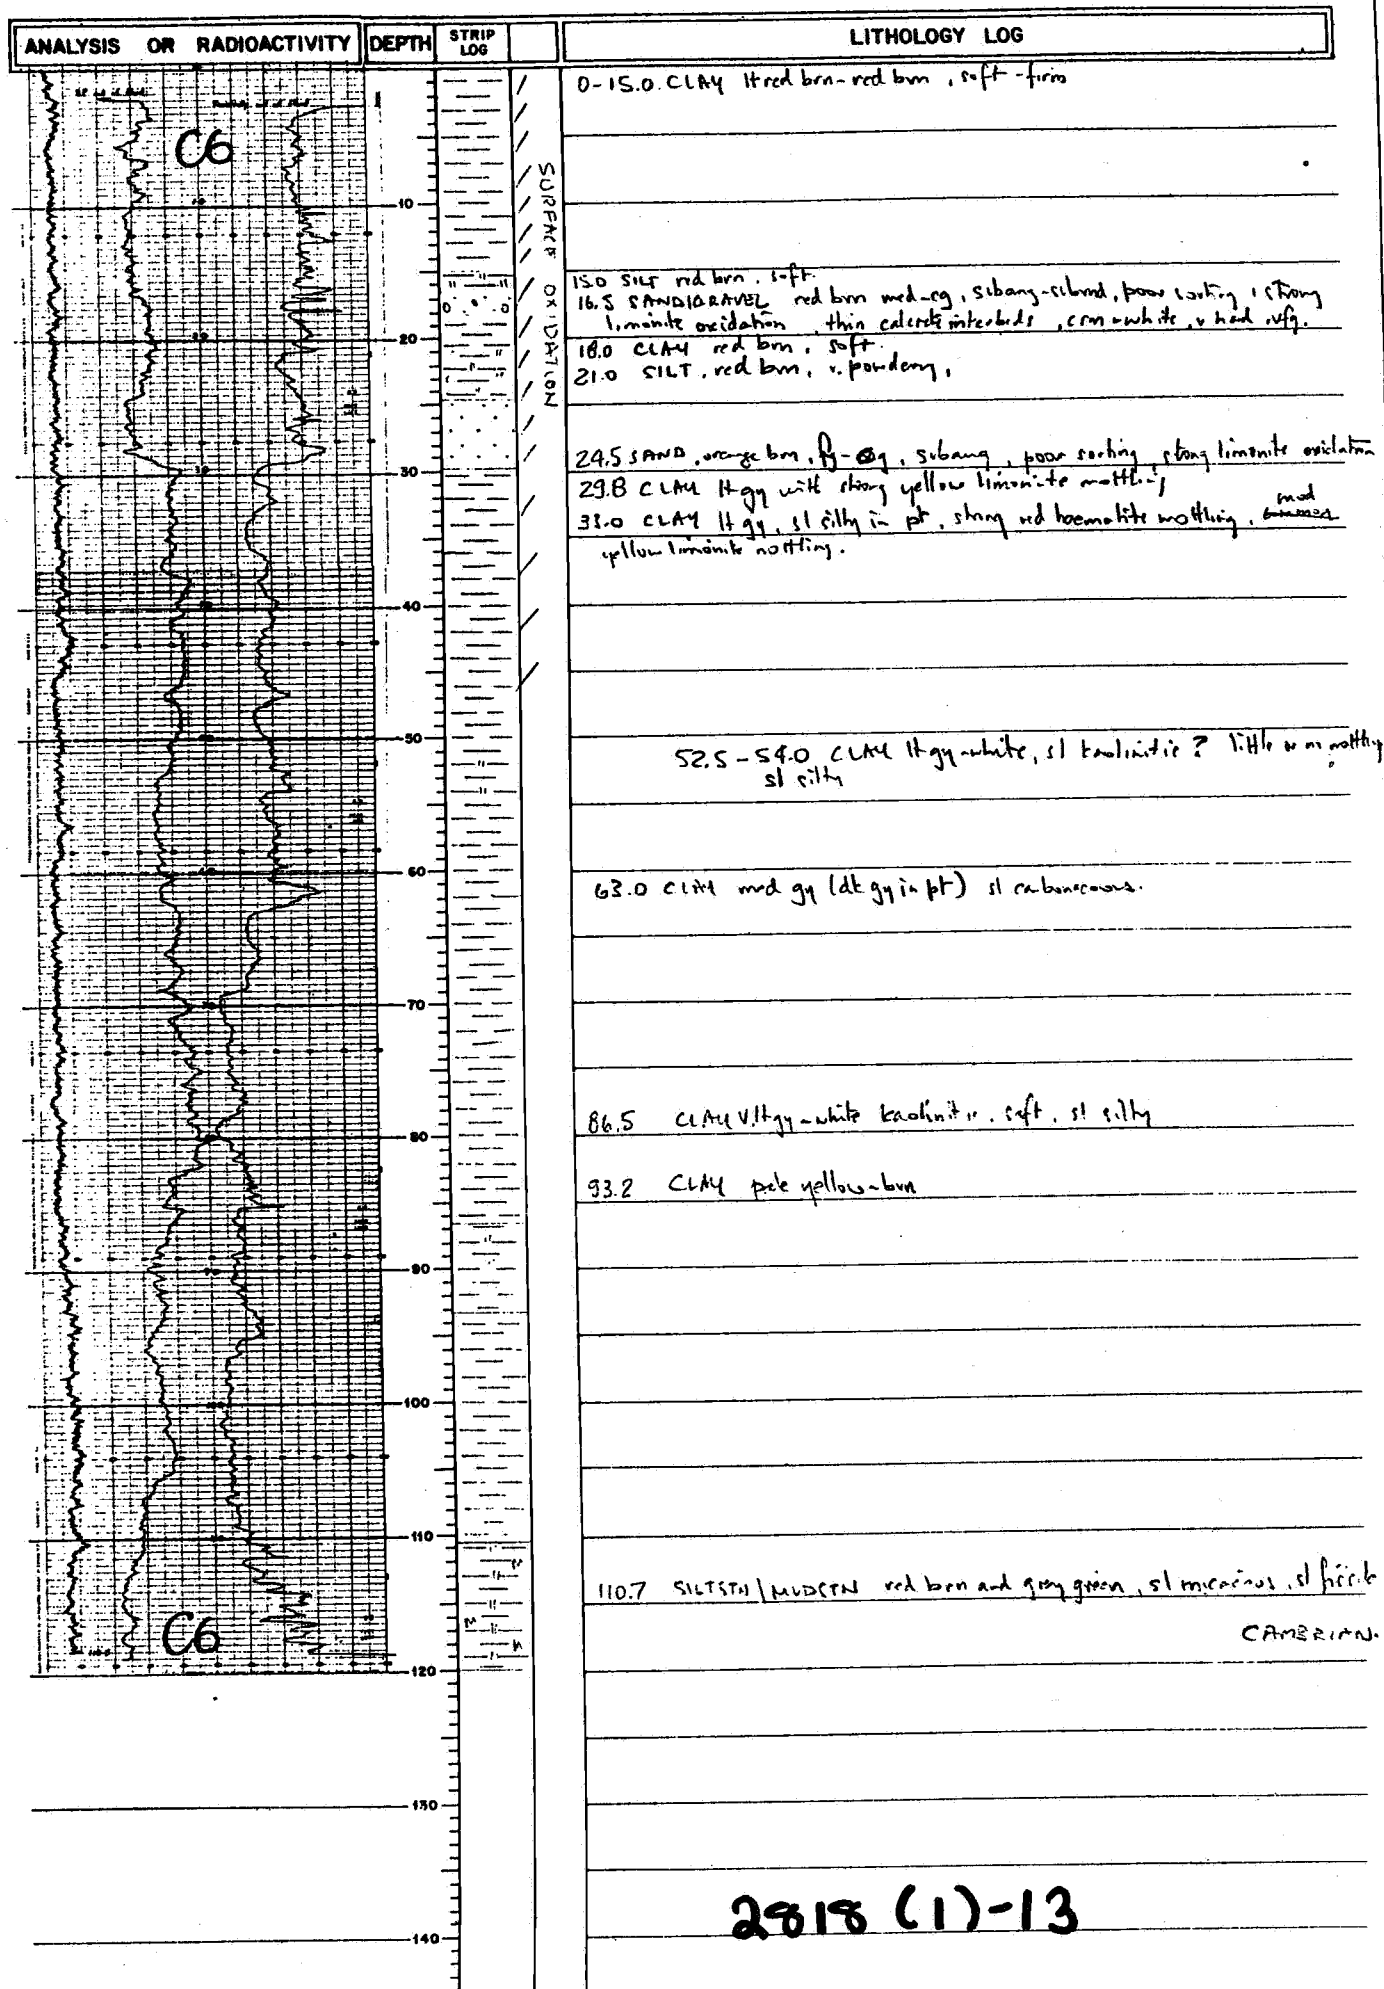 ANALYSIS OR RADIOACTIVITY DEPTH STRIP LOG LITHOLOGY LOG
C6
SURFACE OXIDATION
0-15.0 CLAY lt red brn-red brn, soft-firm
10
15.0 SILT red brn, soft
16.5 SAND/GRAVEL red brn med-cg, subang-subrnd, poor sorting, strong
limonite oxidation, thin calcrete interbeds, crm-white, v hard, vfg.
20
18.0 CLAY red brn, soft
21.0 SILT, red brn, v. powdery,
24.5 SAND, orange brn, fg-cg, subang, poor sorting, strong limonite oxidation
30
29.8 CLAY lt gy with strong yellow limonite mottling
33.0 CLAY lt gy, sl silty in pt, strong red haematite mottling, mod
yellow limonite mottling.
40
50
52.5-54.0 CLAY lt gy-white, sl kaolinitic? little or no mottling
sl silty
60
63.0 CLAY med gy (dk gy in pt) sl carbonaceous.
70
80
86.5 CLAY V.lt gy-white kaolinitic, soft, sl silty
93.2 CLAY pale yellow-brn
90
100
110
110.7 SILTSTN/MUDSTN red brn and grey green, sl micaceous, sl fissile
CAMBRIAN.
C6
120
130
2818 (1)-13
140